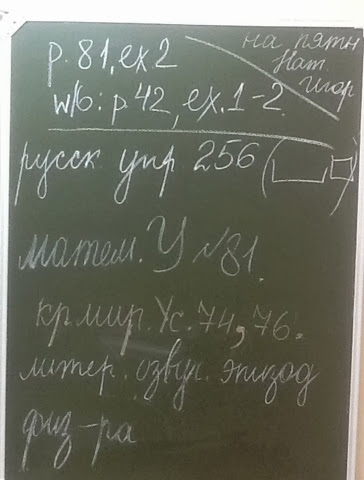 р. 81, ex 2
на пятн
Нат.
Игор
w/б: p 42, ex. 1-2.
русск упр 256 ( )
матем. У №81.
кр. мир. Ус. 74, 76.
литер. озвуч. эпизод
физ-ра